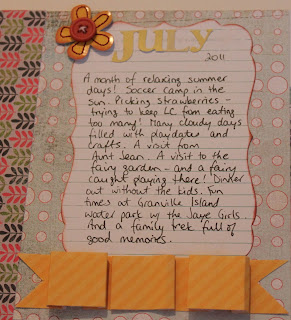 JULY
2011
A month of relaxing summer
days! Soccer camp in the
sun. Picking strawberries -
trying to keep LC from eating
too many! Many cloudy days
filled with playdates and
crafts. A visit from
Aunt Jean. A visit to the
fairy garden - and a fairy
caught playing there! Dinner
out without the kids. Fun
times at Granville Island
water park w/ the Jaye Girls.
And a family trek full of
good memories.